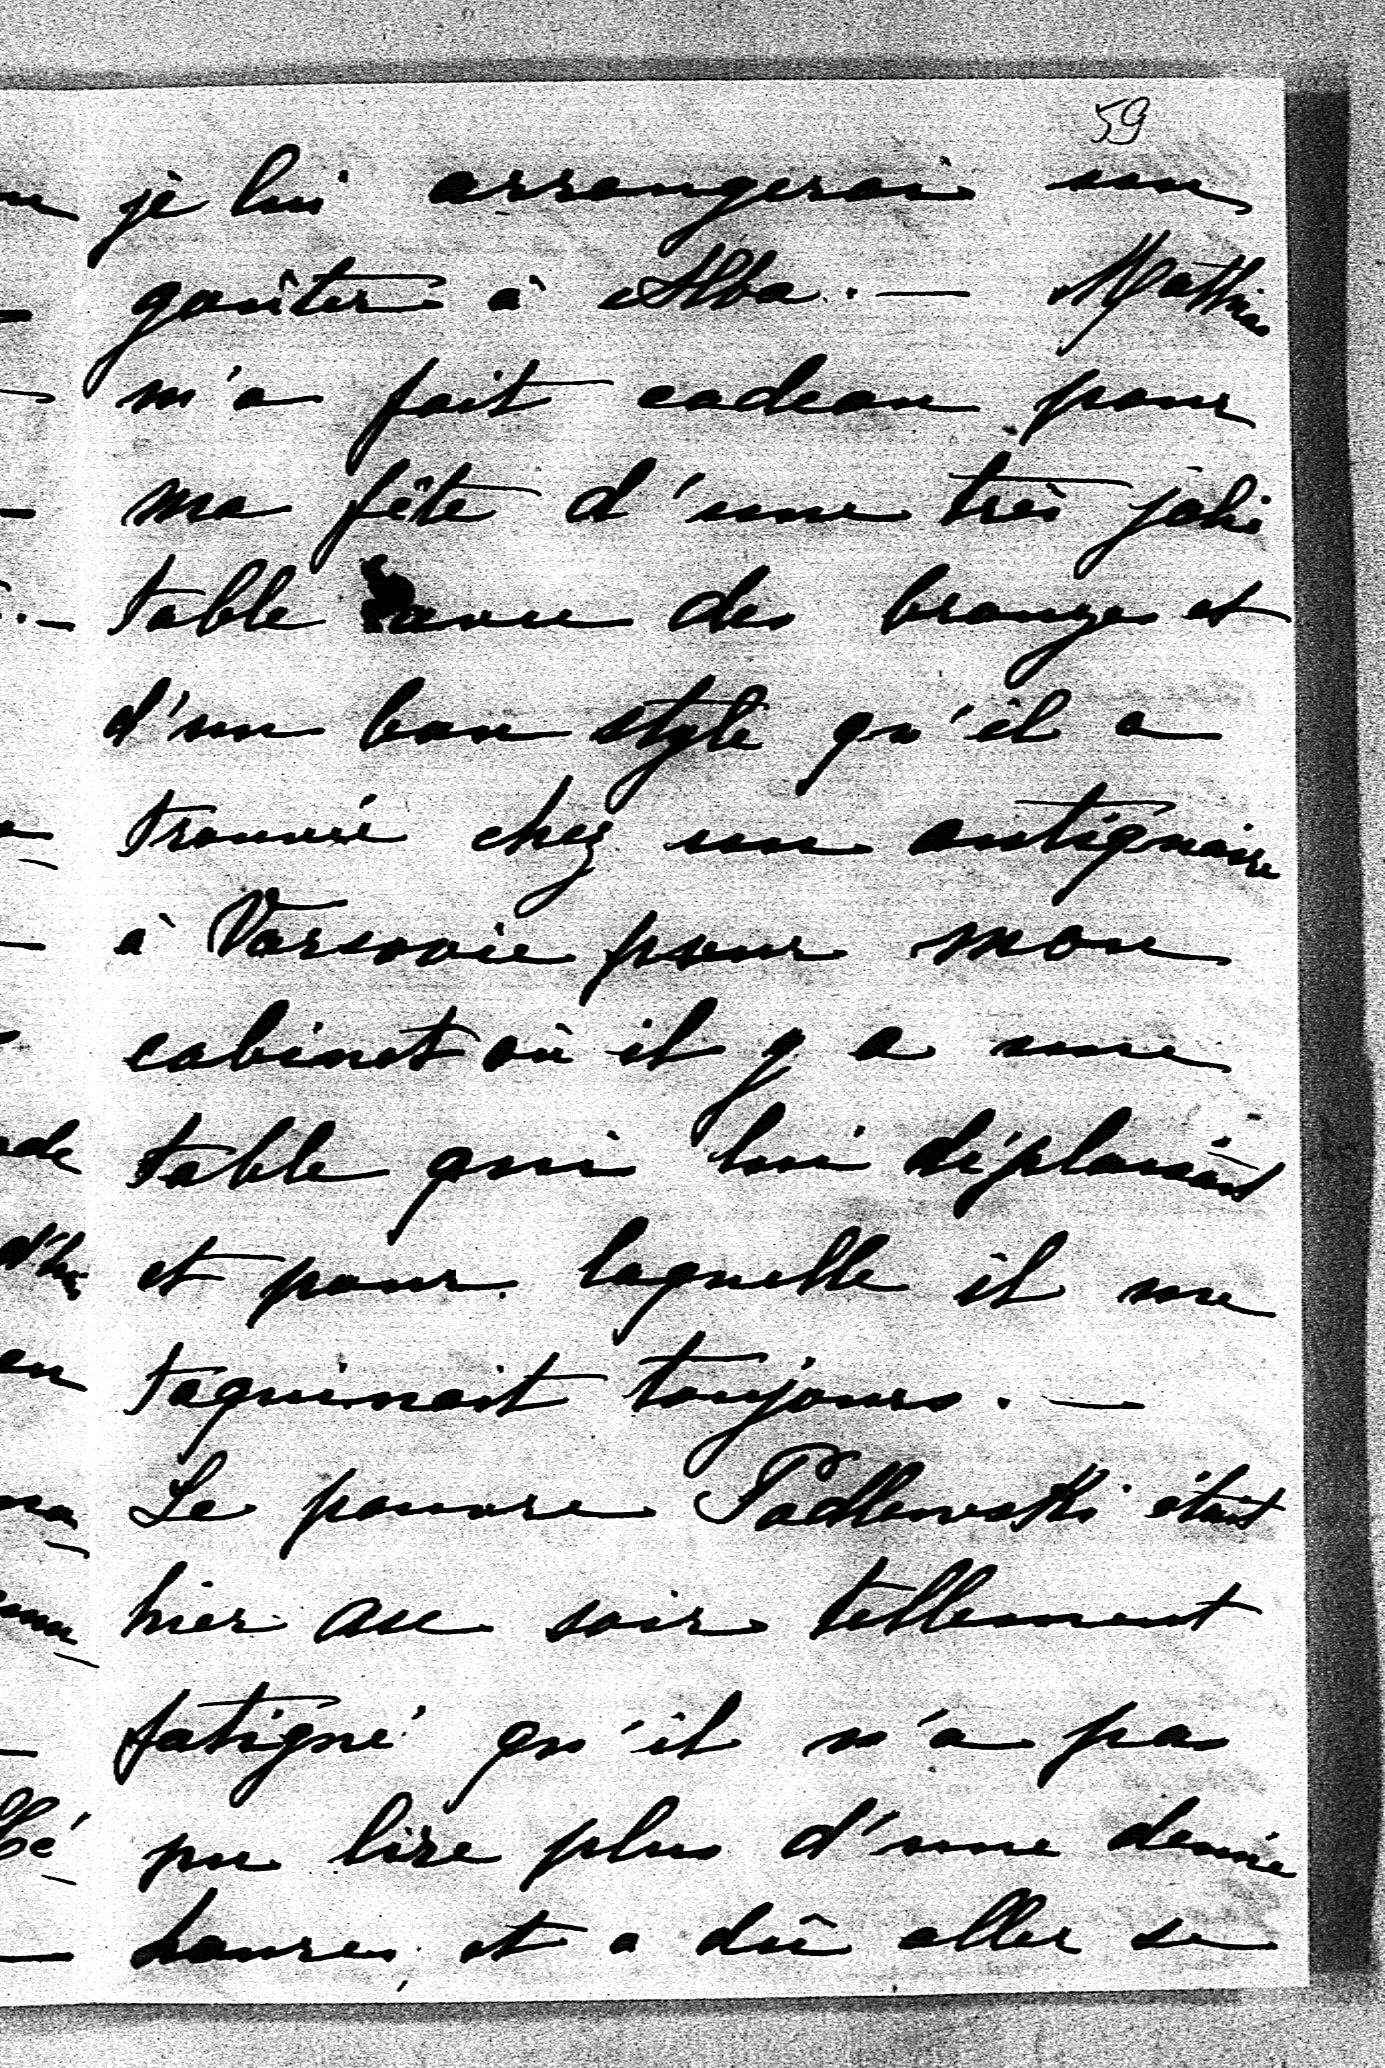 59
je lui arrangerai un
goûter à Alba. — Mathias
m'a fait cadeau pour
ma fête d'une très jolie
table avec des bronzes et
d'un bon style qu'il a
trouvé chez un antiquaire
à Varsovie pour mon
cabinet où il y a une
table qui lui déplaisait
et pour laquelle il me
taquinait toujours. —
Le pauvre Padlewski était
hier au soir tellement
fatigué qu'il n'a pas
pu lire plus d'une demie
heure, et a dû aller se